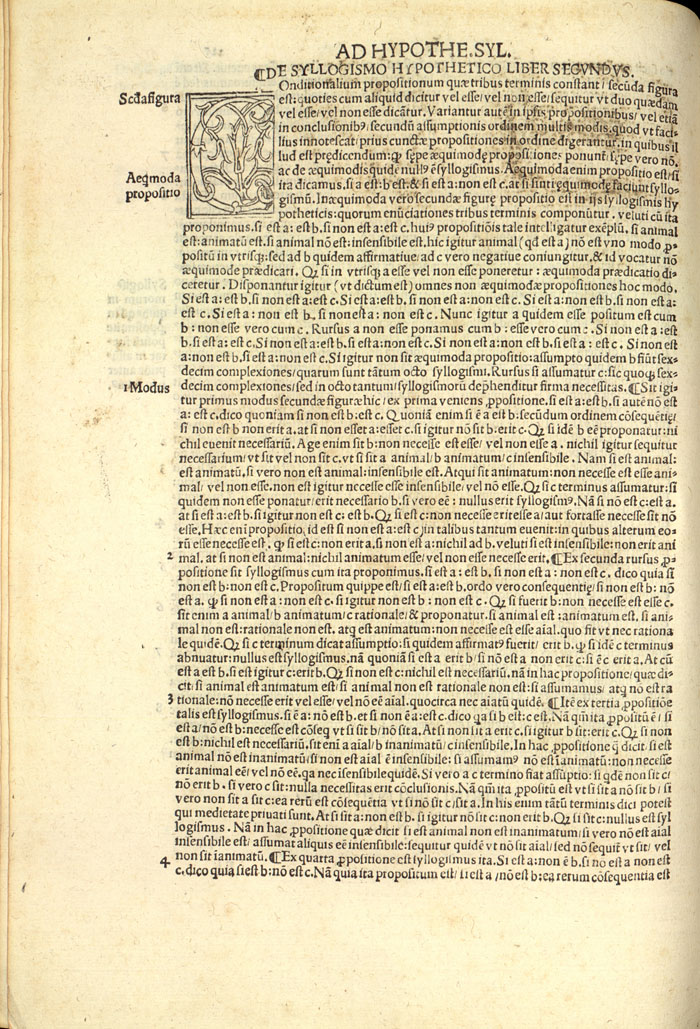 AD HYPOTHE.SYL.
¶DE SYLLOGISMO HYPOTHETICO LIBER SEGVNDVS.
Onditionalium propositionum quæ tribus terminis constant / secūda figura
Scd̄a figura
est: quoties cum aliquid dicitur vel esse / vel non esse / sequitur vt duo quædam
vel esse / vel non esse dicātur. Variantur autē in ipsis propositionibus / vel etiā
in conclusionibꝰ / secundū assumptionis ordinem multis modis. quod vt faci-
lius innotescat / prius cunctæ propositiones in ordine digerantur. in quibus il
lud est prędicendum: ꝙ sępe æquimodę propositiones ponunt / sępe vero nō.
ac de æquimodis quidē nullꝰ ē syllogismus. Aequimoda enim propositio est / si
Aeq̄moda
propositio
ita dicamus. si a est: b est. & si est a: non est c. at si sunt æquimodę faciunt syllo-
gismū. Inæquimoda vero secundæ figurę propositio est in ijs syllogismis hy
potheticis: quorum enūciationes tribus terminis componūtur. veluti cū ita
proponimus. si est a: est b. si non est a: est c. huiꝰ propositiōis tale intelligatur exēplū. si animal
est: animatū est. si animal nō est: insensibile est. hic igitur animal (qd est a) nō est vno modo ꝓ-
positū in vtrisqꝫ: sed ad b quidem affirmatiue / ad c vero negatiue coniungitur. & id vocatur nō
æquimode prædicari. Qꝫ si in vtrisqꝫ a esse vel non esse poneretur: æquimoda prædicatio di-
ceretur. Disponantur igitur (vt dictum est) omnes non æquimodæ propositiones hoc modo.
Si est a: est b. si non est a: est c. Si est a: est b. si non est a: non est c. Si est a: non est b. si non est a:
est c. Si est a: non est b. si non est a: non est c. Nunc igitur a quidem esse positum est cum
b: non esse vero cum c. Rursus a non esse ponamus cum b: esse vero cum c. Si non est a: est
b. si est a: est c. Si non est a: est b. si est a: non est c. Si non est a: non est b. si est a: est c. Si non est
a: non est b. si est a: non est c. Si igitur non sit æquimoda propositio: assumpto quidem b fiūt sex-
decim complexiones / quarum sunt tātum octo syllogismi. Rursus si assumatur c: sic quoqꝫ sex-
1 Modus
decim complexiones / sed in octo tantum / syllogismorū dephenditur firma necessitas. ¶Sit igi-
tur primus modus secundæ figuræ hic / ex prima veniens ꝓpositione. si est a: est b. si autē nō est
a: est c. dico quoniam si non est b: est c. Quoniā enim si ē a est b: secūdum ordinem cōsequētię /
si non est b non erit a. at si non esset a: esset c. si igitur nō sit b. erit c. Qꝫ si idē b eē proponatur: ni
chil euenit necessariū. Age enim sit b: non necesse est esse / vel non esse a. nichil igitur sequitur
necessarium / vt sit vel non sit c. vt si sit a animal / b animatum / c insensibile. Nam si est animal:
est animatū. si vero non est animal: insensibile est. Atqui sit animatum: non necesse est esse ani-
mal / vel non esse. non est igitur necesse esse insensibile / vel nō esse. Qꝫ si c terminus assumatur: si
quidem non esse ponatur / erit necessario b. si vero eē: nullus erit syllogismꝰ. Nā si nō est c: est a.
at si est a: est b. si igitur non est c: est b. Qꝫ si est c: non necesse erit esse a / aut fortasse necesse sit nō
esse. Hæc enī propositio, id est si non est a: est c / in talibus tantum euenit: in quibus alterum eo-
rū esse necesse est. ꝙ si est c: non erit a. si non est a: nichil ad b. veluti si est insensibile: non erit ani
2
mal. at si non est animal: nichil animatum esse / vel non esse necesse erit. ¶Ex secunda rursus ꝓ-
positione sit syllogismus cum ita proponimus. si est a: est b. si non est a: non est c. dico quia si
non est b: non est c. Propositum quippe est / si est a: est b. ordo vero consequentię / si non est b: nō
est a. ꝙ si non est a: non est c. si igitur non est b: non est c. Qꝫ si fuerit b: non necesse est esse c.
sit enim a animal / b animatum / c rationale / & proponatur. si animal est: animatum est. si ani-
mal non est: rationale non est. atqꝫ est animatum: non necesse est esse aīal. quo fit vt nec rationa
le quidē. Qꝫ si c terminum dicat assumptio: si quidem affirmatꝰ fuerit / erit b. ꝙ si idē c terminus
abnuatur: nullus est syllogismus. nā quoniā si est a erit b / si nō est a non erit c: si ē c erit a. At cū
est a est b. si est igitur c: erit b. Qꝫ si non est c: nichil est necessariū. nā in hac propositione / quæ di-
cit / si animal est animatum est / si animal non est rationale non est: si assumamus / atqꝫ nō est ra
3
tionale: nō necesse erit vel esse / vel nō eē aīal. quocirca nec aiatū quidē. ¶Itē ex tertia ꝓpōitiōe
talis est syllogismus. si ē a: nō est b. et si non ē a: est c. dico qa si b est: c est. Nā qm̄ ita ꝓpositū ē / si
est a / nō est b: necesse est cōseq̄ vt si sit b / nō sit a. At si non sit a erit c. si igitur b sit: erit c. Qꝫ si non
est b: nichil est necessariū. sit enī a aīal / b inanimatū / c insensibile. In hac ꝓpositione q̄ dicit. si est
animal nō est inanimatū / si non est aial ē insensibile: si assumamꝰ nō est inanimatū: non necesse
erit animal eē / vel nō eē. qa nec isensibile quidē. Si vero a c termino fiat assūptio: si q̄dē non sit c /
nō erit b. si vero c sit: nulla necessitas erit cōclusionis. Nā qm̄ ita ꝓpositū est vt si sit a nō sit b / si
vero non sit a sit c: ea rerū est cōsequētia vt si nō sit c / sit a. In his enim tātū terminis dici potest
qui medietate priuati sunt. At si sit a: non est b. si igitur nō sit c: non erit b. Qꝫ si sit c: nullus est syl
logismus. Nā in hac ꝓpositione quæ dicit si est animal non est inanimatum / si vero nō est aial
insensibile est / assumat aliquis eē insensibile: sequitur quidē vt nō sit aial / sed nō sequit̄ vt sit / vel
4
non sit ianimatū. ¶Ex quarta ꝓpositione est syllogismus ita. Si est a: non ē b. si nō est a non est
c. dico quia si est b: nō est c. Nā quia ita propositum est / si est a / nō est b: ea rerum cōsequentia est